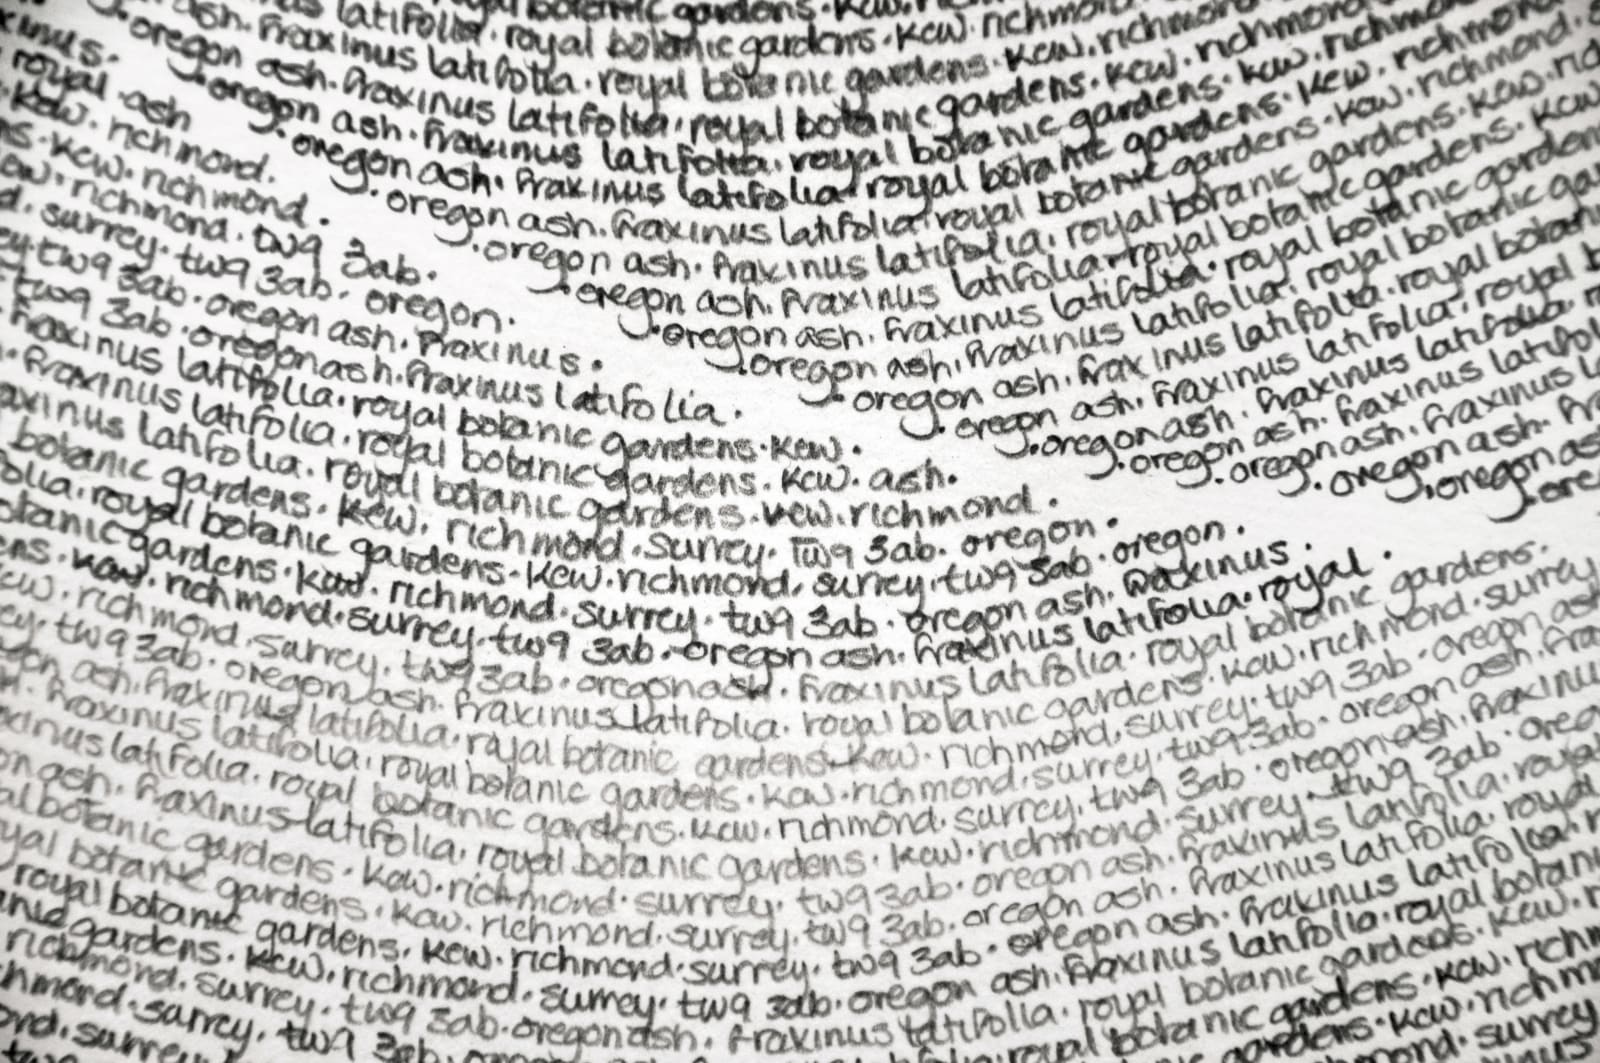 royal botanic gardens. kew.
latifolia. royal botanic gardens. kew. richmond
ash. fraxinus latifolia. royal botanic gardens. kew. richmond
oregon ash. fraxinus latifolia. royal botanic gardens. kew. richmond
.oregon ash. fraxinus latifolia. royal botanic gardens. kew. richmond
.oregon ash. fraxinus latifolia. royal botanic gardens. kew. richmond
.oregon ash. fraxinus latifolia. royal botanic gardens. kew. richmond.
.oregon ash. fraxinus latifolia. royal botanic gardens. kew.
.oregon ash. fraxinus latifolia. royal botanic gardens. kew
.oregon ash. fraxinus latifolia. royal botanic gardens
.oregon ash. fraxinus latifolia. royal botanic
.oregon ash. fraxinus latifolia. royal
.oregon ash. fraxinus latifolia. royal
.oregon ash. fraxinus latifolia
.oregon ash. fraxinus
.oregon ash. fraxinus
.oregon ash.
.oregon ash
royal ash
kew. richmond.
kew. richmond.
richmond. tw9 3ab.
surrey. tw9 3ab. oregon.
tw9 3ab. oregon ash. fraxinus.
tw9 3ab. oregon ash. fraxinus latifolia.
fraxinus latifolia. royal botanic gardens. kew.
fraxinus latifolia. royal botanic gardens. kew. ash.
latifolia. royal botanic gardens. kew. richmond.
botanic gardens. kew. richmond. surrey. tw9 3ab. oregon.
royal botanic gardens. kew. richmond. surrey. tw9 3ab. oregon.
gardens. kew. richmond. surrey. tw9 3ab. oregon ash. fraxinus.
kew. richmond. surrey. tw9 3ab. oregon ash. fraxinus latifolia. royal.
richmond. surrey. tw9 3ab. oregon ash. fraxinus latifolia. royal botanic gardens.
tw9 3ab. oregon ash. fraxinus latifolia. royal botanic gardens. kew. richmond. surrey
ash. fraxinus latifolia. royal botanic gardens. kew. richmond. surrey. tw9 3ab. oregon ash
fraxinus latifolia. royal botanic gardens. kew. richmond. surrey. tw9 3ab. oregon ash.
latifolia. royal botanic gardens. kew. richmond. surrey. tw9 3ab. oregon ash. fraxinus
ash. fraxinus latifolia. royal botanic gardens. kew. richmond. surrey. tw9 3ab.
botanic gardens. kew. richmond. surrey. tw9 3ab. oregon ash. fraxinus latifolia. royal
botanic gardens. kew. richmond. surrey. tw9 3ab. oregon ash. fraxinus latifolia. royal
royal botanic gardens. kew. richmond. surrey. tw9 3ab. oregon ash. fraxinus latifolia.
gardens. kew. richmond. surrey. tw9 3ab. oregon ash. fraxinus latifolia. royal botanic
richmond. surrey. tw9 3ab. oregon ash. fraxinus latifolia. royal botanic gardens. kew.
surrey. tw9 3ab. royal botanic gardens. kew.
surrey. gardens. kew. richmond
surrey